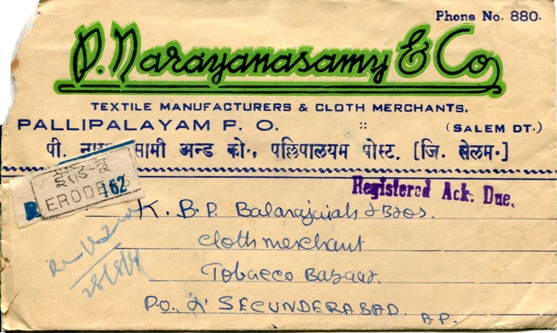 Phone No. 880.
P. Narayanasamy & Co
TEXTILE MANUFACTURERS & CLOTH MERCHANTS.
PALLIPALAYAM P. O. :: (SALEM DT.)
पी. सामी अन्ड को., पल्लिपालयम पोस्ट. [जि. सेलम.]
ERODE
162
Registered Ack. Due.
K. B. P. Balarajaiah & Bros.
cloth merchant
Tobacco Bazaar.
P.O. SECUNDERABAD A.P.